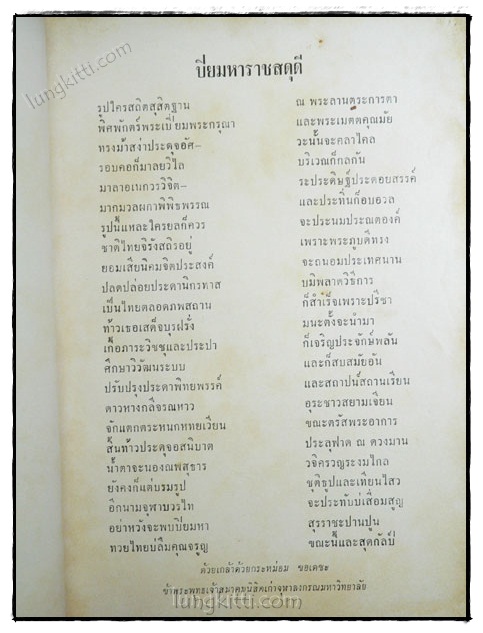 lungkitti.com
ปิยมหาราชสดุดี
รูปใครสถิตสุสิตฐาน ณ พระลานตระการตา
พิศพักตร์พระเปี่ยมพระกรุณา และพระเมตตคุณมัย
ทรงม้าสง่าประดุจอัศ– วะนั้นจะคลาไคล
รอบคอก็มาลยวิไล บริเวณก็กลกัน
มาลาอเนกวรวิจิต– ระประดิษฐ์ประดอยสรรค์
มากมวลผกาพิพิธพรรณ และประทิ่นก็อบอวล
รูปนี้แหละใครยลก็ควร จะประนมประณตองค์
ชาติไทยจิรังสถิรอยู่ เพราะพระภูบดีทรง
ยอมเสียนิคมจิตประสงค์ จะถนอมประเทศนาน
ปลดปล่อยประดานิกรทาส บมิพลาดวิธีการ
เป็นไทยตลอดภพสถาน ก็สำเร็จเพราะปรีชา
ท้าวเธอเสด็จบุรฝรั่ง มนะตั้งจะนำมา
เกื้อภาระวิชชุและประปา ก็เจริญประจักษ์พลัน
ศึกษาวิวัฒนระบบ และก็สบสมัยอัน
ปรับปรุงประดาพิทยพรรค์ และสถาปน์สถานเรียน
ดาวหางกลีจรณหาว อุระชาวสยามเจียน
จักแตกตระหนกหทยเวียน ขณะตรัสพระอาการ
สิ้นท้าวประดุจอสนิบาต ประลุฟาด ณ ดวงมาน
น้ำตาจะนองณพสุธาร วจิครวญระงมไกล
ยังคงก็แต่บรมรูป ชุติธูปและเทียนไสว
อีกนามจุฬาบวรไท จะประทับบ่เสื่อมสูญ
อย่าหวังจะพบปิยมหา สุรราชะปานปูน
ทวยไทยบ่ลืมคุณจรูญ ขณะนี้และสุดกัลป์
ด้วยเกล้าด้วยกระหม่อม ขอเดชะ
ข้าพระพุทธเจ้าสมาคมนิสิตเก่าจุฬาลงกรณมหาวิทยาลัย
lungkitti.com